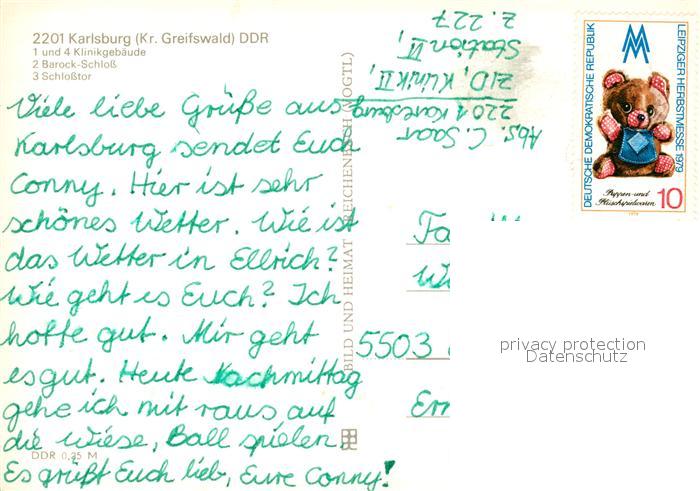 2201 Karlsburg (Kr. Greifswald) DDR
1 und 4 Klinikgebäude
2 Barock-Schloß
3 Schloßtor
Viele liebe Grüße aus
Karlsburg sendet Euch
Conny. Hier ist sehr
schönes Wetter. Wie ist
das Wetter in Ellrich?
Wie geht es Euch? Ich
hoffe gut. Mir geht
es gut. Heute Nachmittag
gehe ich mit raus auf
die Wiese, Ball spielen.
Es grüßt Euch lieb, Eure Conny!
DDR 0,25 M
BILD UND HEIMAT REICHENBACH (VOGTL)
Abs. C. Saar
2201 Karlsburg
ZID, Klinik II,
Station IV,
Z. 227
DEUTSCHE DEMOKRATISCHE REPUBLIK
LEIPZIGER HERBSTMESSE 1979
MM
Puppen- und
Plüschspielwaren
10
1979
Fa
5503
privacy protection
Datenschutz